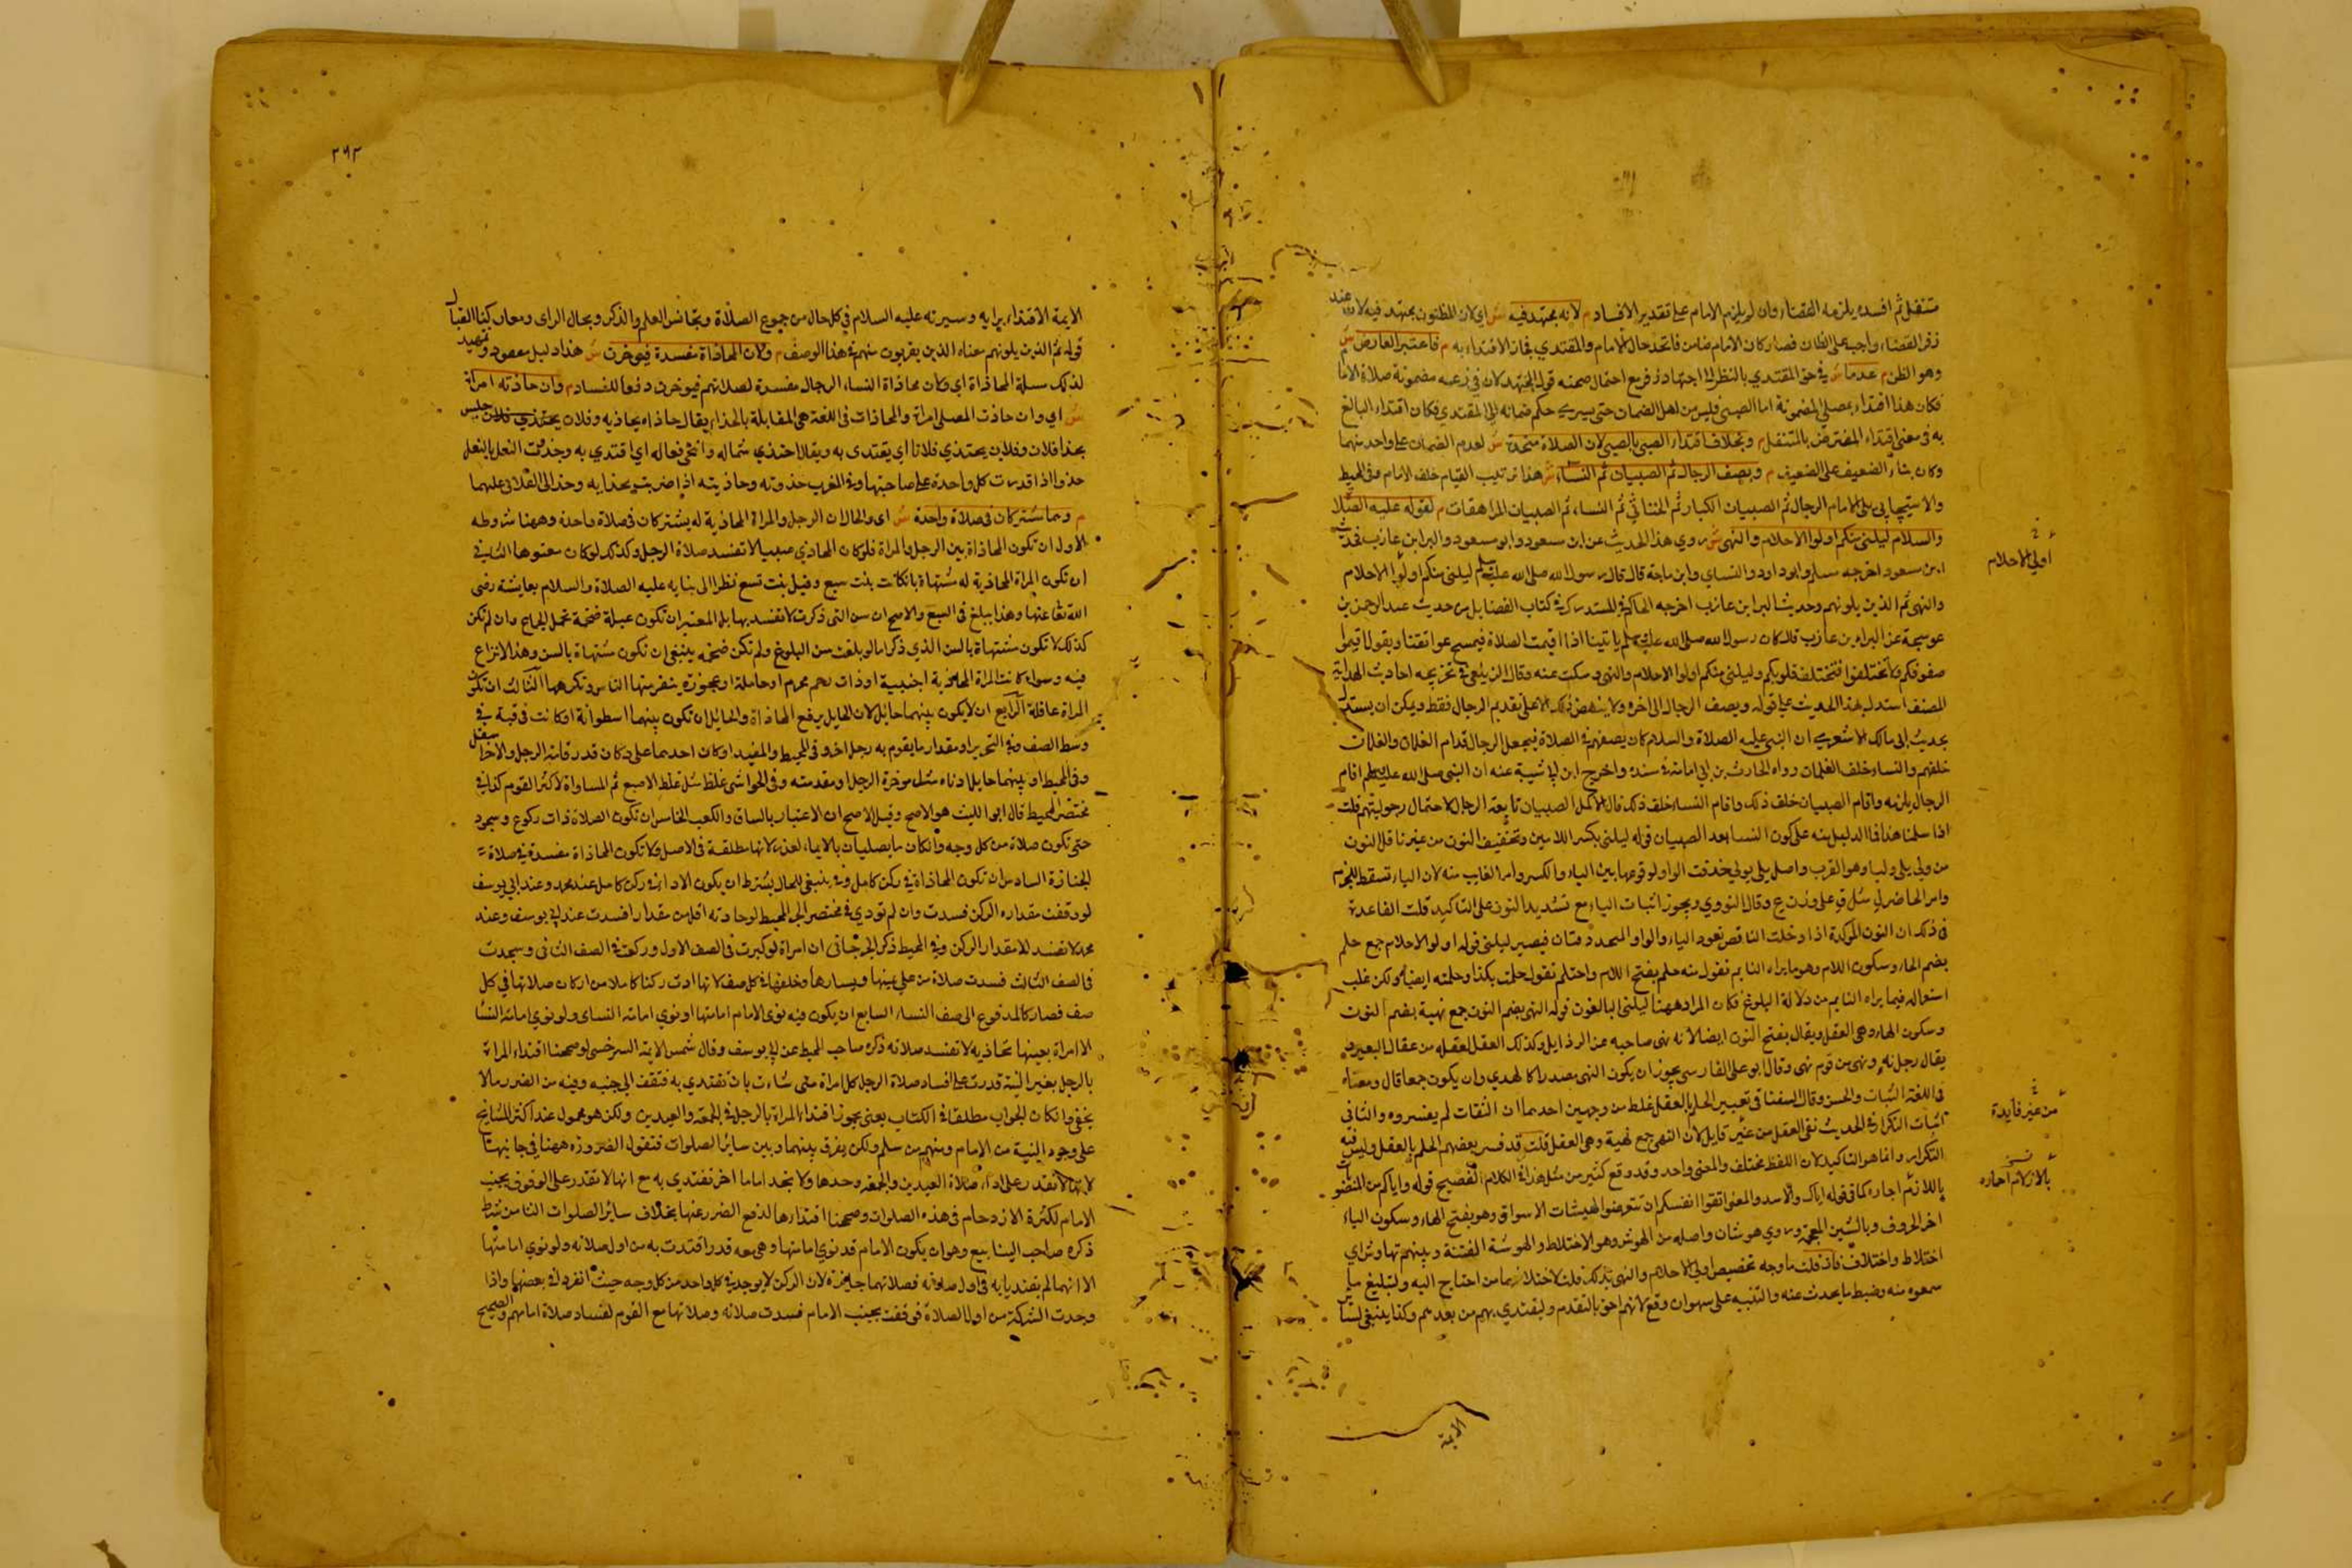 متنفل ثم افسده يلزمه القضاء وان لم يلزم الامام على تقدير الافساد م لانه مجتهد فيه ش اي لان المظنون مجتهد فيه لان عند
زفر القضاء واجب على الظان فصار كان الامام ضامن فاتحد حال الامام والمقتدي فجاز الاقتداء به م فاعتبر العارض ش
وهو الظن م عدما ش في حق المقتدي بالنظر الى اجتهاد زفر مع احتمال صحته قول المجتهد لان في زعمه مضمونة صلاة الامام
فكان هذا اقتداء بمصلي المضمونة اما الصبي فليس من اهل الضمان حتى يسري حكم ضمانه الى المقتدي فكان اقتداء البالغ
به في معنى اقتداء المفترض بالمتنفل م وبخلاف اقتداء الصبي بالصبي لان الصلاة متحدة ش لعدم الضمان على واحد منهما
وكان بناء الضعيف على الضعيف م ويصف الرجال ثم الصبيان ثم النساء ش هذا ترتيب القيام خلف الامام وفي المحيط
والاسبيجابي يلي الامام الرجال ثم الصبيان الكبار ثم الخناثي ثم النساء ثم الصبيان المراهقات م لقوله عليه الصلاة
والسلام ليلني منكم اولوا الاحلام والنهى ش روي هذا الحديث عن ابن مسعود وابو مسعود والبرا بن عازب فحديث
ابن مسعود اخرجه مسلم وابو داود والنساي وابن ماجة قال قال رسول الله صلى الله عليه وسلم ليلني منكم اولوا الاحلام
والنهى ثم الذين يلونهم وحديث البرا بن عازب اخرجه الحاكم في المستدرك في كتاب الفضايل من حديث عبد الرحمن بن
عوسجة عن البراء بن عازب قال كان رسول الله صلى الله عليه وسلم ياتينا اذا اقيمت الصلاة فيمسح عواتقنا ويقول اقيموا
صفوفكم ولا تختلفوا فتختلف قلوبكم وليلني منكم اولوا الاحلام والنهى وسكت عنه وقال الزيلعي في تخريجه احاديث الهداية
المصنف استدل بهذا الحديث على قوله ويصف الرجال الى اخره ولا ينهض ذلك الا على تقديم الرجال فقط ويمكن ان يستدل
بحديث ابي مالك الاشعري ان النبي عليه الصلاة والسلام كان يصفهم في الصلاة فيجعل الرجال قدام الغلمان والغلمان
خلفهم والنساء خلف الغلمان رواه الحارث بن ابي اسامة في مسنده واخرج ابن ابي شيبة عنه ان النبي صلى الله عليه وسلم اقام
الرجال يلونه واقام الصبيان خلف ذلك واقام النساء خلف ذلك قال الاكمل الصبيان تابعة الرجال لاحتمال رجوليتهم قلت
اذا سلمنا هذا فما الدليل منه على كون النسا بعد الصبيان قوله ليلني بكسر اللامين وتخفيف النون من غير نا قبل النون
من ولي يلي وليا وهو القرب واصل يلي يولي حذفت الواو لوقوعها بين الياء والكسر وامر الغايب منه لان الياء تسقط للجزم
وامر الحاضر ل مثل ق على وزن ع وقال النووي ويجوز اثبات الياء مع تشديد النون على التاكيد قلت القاعدة
في ذلك ان النون المؤكدة اذا دخلت الناقص تعود الياء والواو المحذوفتان فيصير ليلني قوله اولو الاحلام جمع حلم
بضم الحاء وسكون اللام وهو ما يراه النايم تقول منه حلم بفتح اللام واحتلم تقول حلمت بكذا وحلمته ايضا ولكن غلب
استعماله فيما يراه النايم من دلالة البلوغ فكان المراد ههنا ليلني البالغون قوله النهى بضم النون جمع نهية بضم النون
وسكون الهاء وهي العقل ويقال بفتح النون ايضا لانه نهى صاحبه عن الرذايل وكذلك العقل لعقله من عقال البعير و
يقال رجل نه ونهى من قوم نهى وقال ابو علي الفارسي يجوز ان يكون النهى مصدرا كالهدي وان يكون جمعا قال ومعناه
في اللغة الثبات والحسن وقال السفناقي تعبير الحلم بالعقل غلط من وجهين احدهما ان الثقات لم يفسروه والثاني
اثبات التكرار في الحديث نفى العقل من غير قايل لان النهى جمع نهية وهي العقل قلت قد فسر بعضهم الحلم بالعقل وليس فيه
التكرار وانما هو التاكيد لان اللفظ مختلف والمعنى واحد وقد وقع كثير من مثل هذا في الكلام الفصيح قوله واياكم من
اخر الحروف وبالشين المعجمة وروي هوشات واصله من الهوش وهو الاختلاط والهوشة الفتنة وبينهم تهاوش اي
اختلاط واختلاف فان قلت ما وجه تخصيص اولي الاحلام والنهى بذلك قلت لاختلافهما من احتاج اليه ولتبليغ ما
سمعوه منه وضبط ما يحدث عنه والتنبيه على سهوان وقع لانهم احق بالتقدم وليقتدي بهم من بعدهم وكذا ينبغي لساير
اولي الاحلام
من غير فايدة
الايمة
٢٩٣
الايمة الاقتداء برايه وسيرته عليه السلام في كل حال من جموع الصلاة ومجالس العلم والذكر ومجال الراي ومعارك القتال
قوله ثم الذين يلونهم معناه الذين يقربون منهم في هذا الوصف م ولان المحاذاة مفسدة فيؤخرن ش هذا دليل معقود وتمهيد
لذلك مسلة المحاذاة اي وكان محاذاة النساء الرجال مفسدة لصلاتهم فيؤخرن دفعا للفساد م وان حاذته امراة
ش اي وان حاذت المصلى امراة والمحاذات في اللغة هي المقابلة بالحذاء يقال حاذاه يحاذيه وفلان يحتذي فلان جلس
بحذا فلان وفلان يحتذي فلانا اي يقتدى به ويقال احتذي مثاله وانحى فعاله اي اقتدي به وحذوت النعل بالنعل
حذوا اذا قدرت كل واحدة على صاحبتها وفي المغرب حذوته وحاذيته
م وهما مشتركان في صلاة واحدة ش اي والحال ان الرجل والمراة المحاذية له يشتركان في صلاة واحدة وههنا شروطه
الاول ان تكون المحاذاة بين الرجل والمراة فلو كان المحاذي صبيا لا تفسد صلاة الرجل وكذلك لو كان معتوها الثاني
ان تكون المراة المحاذية له مشتهاة بان كانت بنت سبع وقيل بنت تسع نظرا الى بنايه عليه الصلاة والسلام بعايشة رضى
الله تعا عنها وهذا يبلغ في السبع والاصح ان سن التي ذكرت لا تفسد بها بل المعتبر ان تكون عبلة ضخمة تحمل الجماع وان لم تكن
كذلك لا تكون مشتهاة بالسن الذي ذكرا ما لو بلغت سن البلوغ ولم تكن ضخمه ينبغي ان تكون مشتهاة بالسن وهذا لا نزاع
فيه وسواء كانت المراة المحاذية اجنبية او ذات رحم محرم او حاملة او عجوزة ينفر منها الناس وتكرهها الثالث ان تكون
المراة عاقلة الرابع ان لا يكون بينهما حايل لان الحايل يرفع المحاذاة والحايل ان تكون بينهما اسطوانة او كانت في قبة في
وسط الصف وفي التحرير او مقدار ما يقوم به رجل اخر وفي المحيط والمفيد او كان احدهما على دكان قدر قامة الرجل والاخر اسفل
وفي المحيط او بينهما حايل ادناه مثل موخرة الرجل او مقدمته وفي الحواشي غلظ مثل غلظ الاصبع ثم المساواة لاكثر القوم كذا في
مختصر المحيط قال ابو الليث هو الاصح وقيل الاصح ان الاعتبار بالساق والكعب الخامس ان تكون الصلاة ذات ركوع وسجود
حتى تكون صلاة من كل وجه وان كان ما يصليان بالايماء لعذر لانها مطلقة في الاصل فلا تكون المحاذاة مفسدة في صلاة
الجنازة السادس ان تكون المحاذاة في ركن كامل وفي ينبغي للحال يشترط ان يكون الاداء في ركن كامل عند محمد وعند ابي يوسف
لو وقفت مقداره الركن فسدت وان لم تؤدي في مختصر البحر المحيط لو حاذته اقل من مقدار افسدت عند ابي يوسف وعند
محمد لا تفسد للا مقدار الركن وفي المحيط ذكر الجرجاني ان امراة لو كبرت في الصف الاول وركعت في الصف الثاني وسجدت
في الصف الثالث فسدت صلاة من على يمينها ويسارها وخلفها في كل صف لانها ادت ركنا كاملا من اركان صلاتها في كل
صف فصار كالمدفوع الى صف النساء السابع ان يكون فيه نوى الامام امامتها او نوي امامة النساى ولو نوي امامة النسا
الا امراة بعينها تحاذيه لا تفسد صلاته ذكره صاحب المحيط عن ابي يوسف وقال شمس الايمة السرخسي لو صححنا اقتداء المراة
بالرجل بغير النية قدرت على افساد صلاة الرجل كل امراة متى شاءت بان تقتدي به فتقف الى جنبه وفيه من الضرر ما لا
يخفى وان كان الجواب مطلقا في الكتاب يعني يجوز اقتداء المراة بالرجل في الجمعة والعيدين ولكن هو محمول عند اكثر المشايخ
على وجود النية من الامام ومنهم من سلم ولكن يفرق بينهما وبين ساير الصلوات فنقول الضرورة ههنا في جانبها
لانها لا تقدر على اداء صلاة العيدين والجمعة وحدها ولا تجد اماما اخر تقتدي به مع انها لا تقدر على الوقوف بجنب
الامام لكثرة الازدحام في هذه الصلوات وصححنا اقتداءها لدفع الضرر عنها بخلاف ساير الصلوات الثامن شرط
ذكره صاحب الينابيع وهو ان يكون الامام قد نوي امامتها وهي معه قد اقتدت به من اول صلاته ولو نوي امامتها
الا انهما لم يقتديا به في اول صلاته فصلاتهما جايزة لان الركن لا يوجد في كل واحد من كل وجه حيث انفرد في بعضها واذا
وجدت الشركة من اول الصلاة فوقفت بجنب الامام فسدت صلاته وصلاتها مع القوم لفساد صلاة امامهم والصحيح